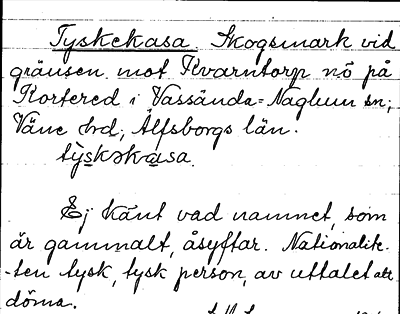 Tyskekasa. Skogsmark vid
gränsen mot Kvarntorp nö på
Kortered i Vassända-Naglum sn;
Väne hd, Älfsborgs län.
tỳskəkasa.
Ej känt vad namnet, som
är gammalt, åsyftar. Nationalite-
-ten tysk, tysk person, av uttalet att
döma.